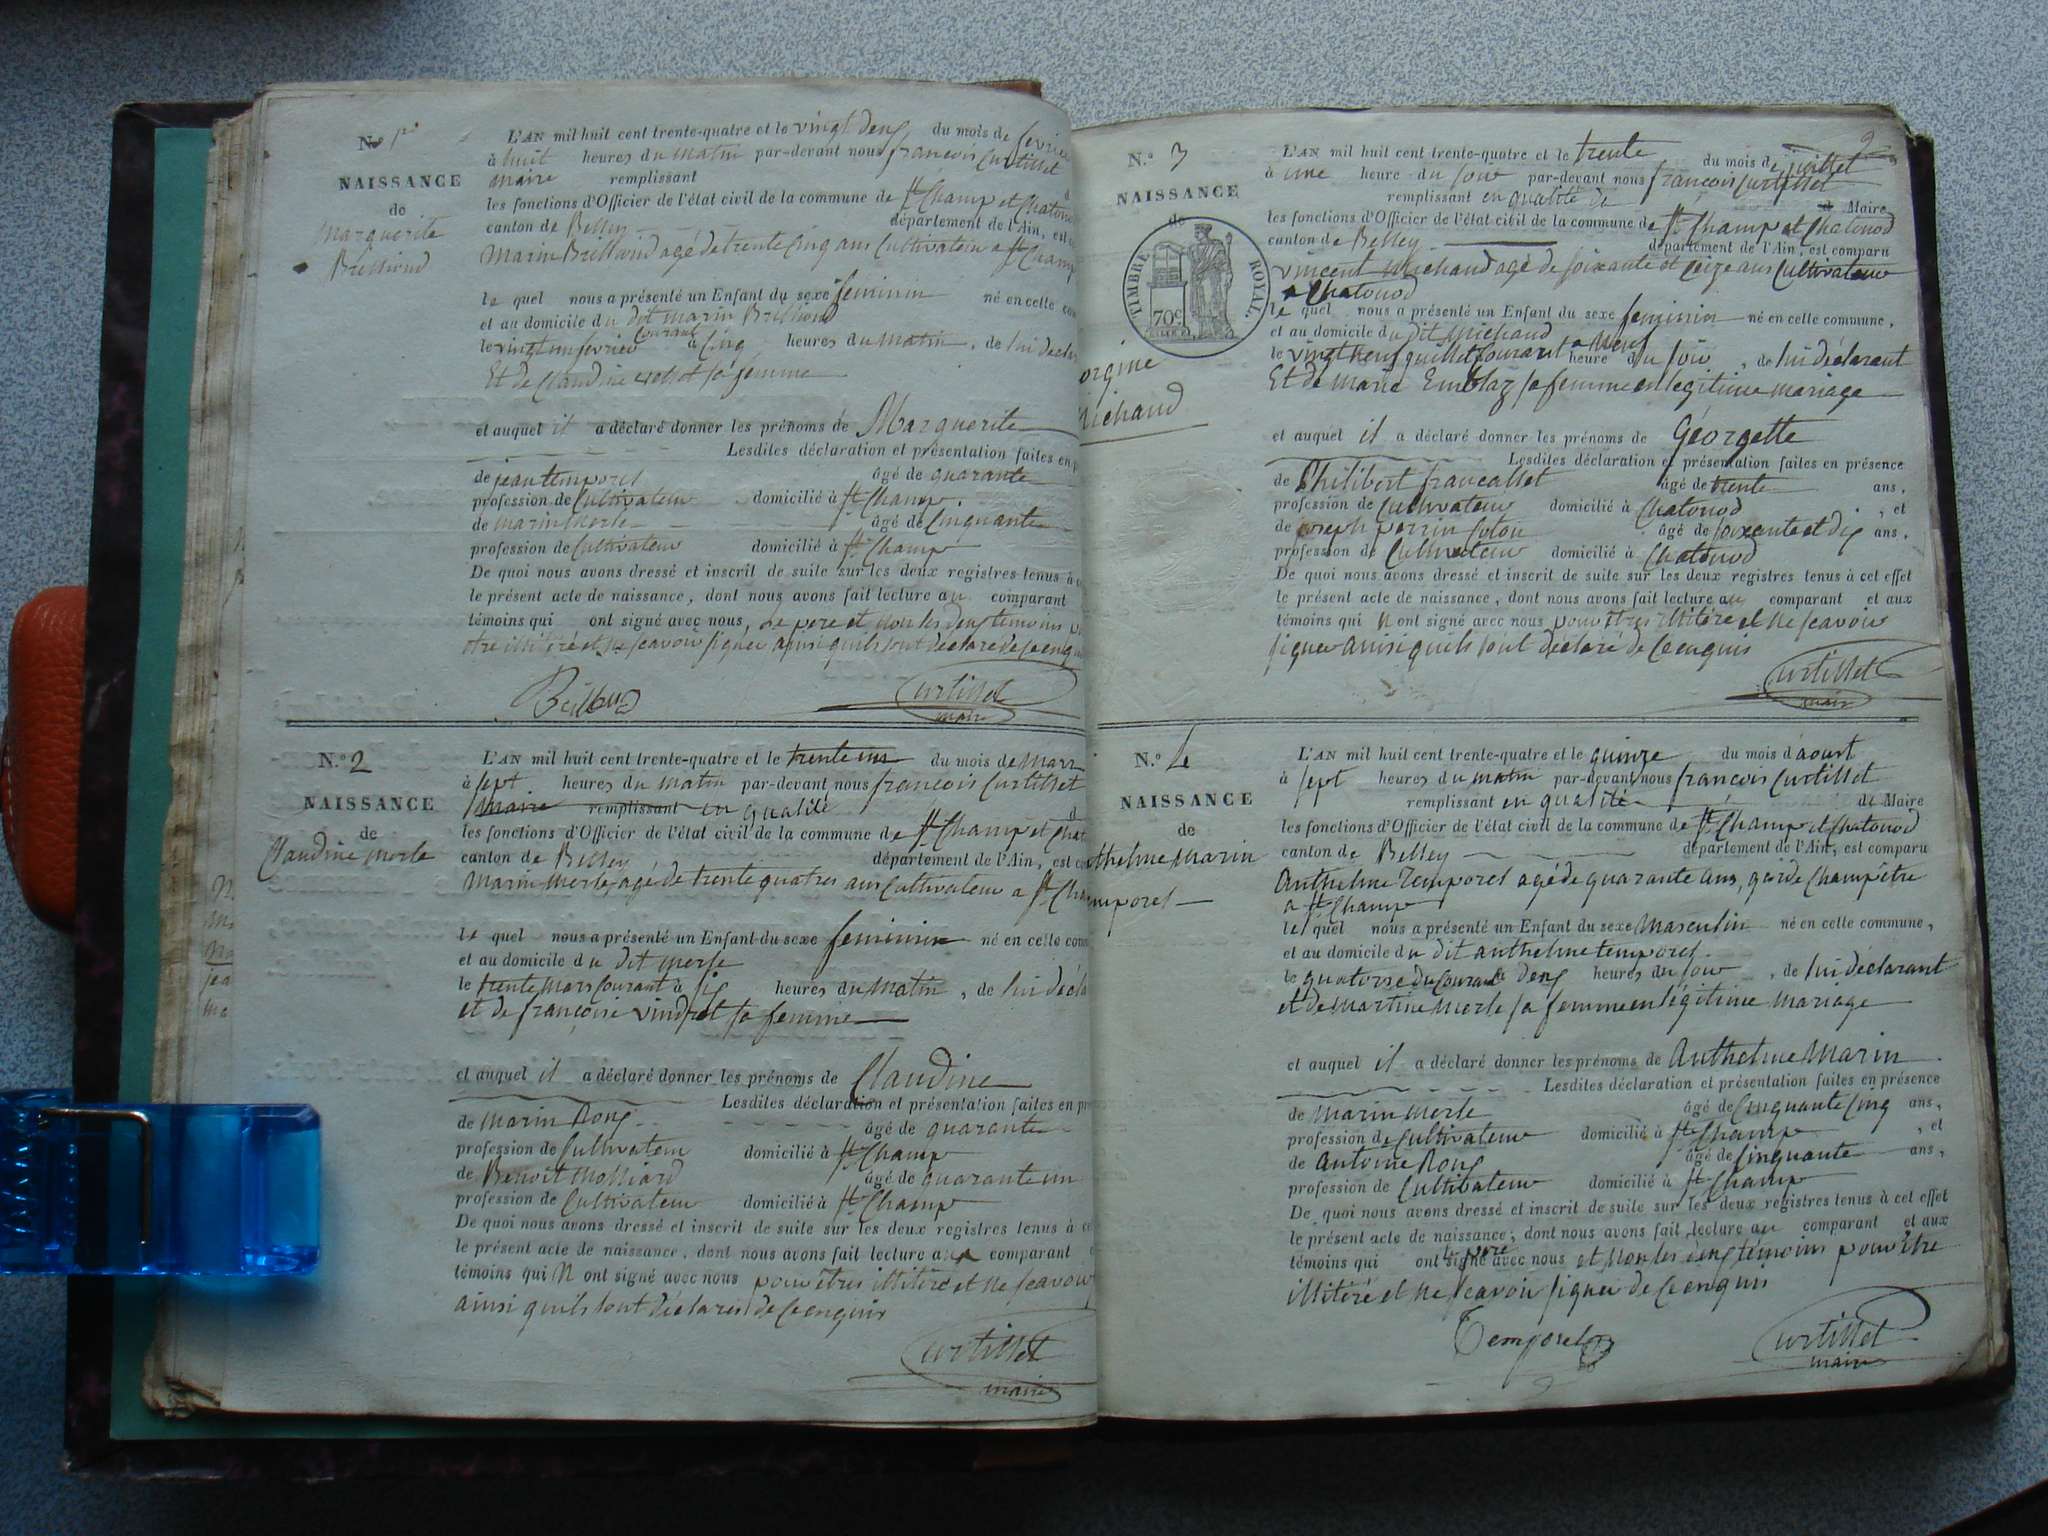 N.o 1er
NAISSANCE
de
Marguerite
Brilliond
L'AN mil huit cent trente-quatre et le vingt deux du mois de fevrie
à huit heures du matin par-devant nous françois Curtillet
maire remplissant d
les fonctions d'Officier de l'état civil de la commune de St Champ et Chatono
canton de Belley département de l'Ain, est
Marin agé de trente Cinq ans Cultivateur a St Champ
le quel nous a présenté un Enfant du sexe feminin né en cette com
et au domicile du dit marin
le vingt un fevrier courant à Cinq heures du matin, de lui décla
Et de Claudine sa femme
et auquel il a déclaré donner les prénoms de Marguerite
Lesdites déclaration et présentation faites en p
de jean temporel âgé de quarante
profession de Cultivateur domicilié à St Champ.
de marin merle âgé de Cinquante
profession de Cultivateur domicilié à St Champ
De quoi nous avons dressé et inscrit de suite sur les deux registres tenus à c
le présent acte de naissance, dont nous avons fait lecture au comparant
témoins qui ont signé avec nous, Le pere et non les deux temoins p
etre illitéré et ne scavoir signer ainsi quils sont déclaré de ce enqui
Curtillet
maire
N.o 2
NAISSANCE
de
Claudine Merle
L'AN mil huit cent trente-quatre et le trente un du mois de Mars
à sept heures du matin par-devant nous françois Curtillet
Maire remplissant en qualité d
les fonctions d'Officier de l'état civil de la commune de St Champ et Chat
canton de Belley département de l'Ain, est co
Marin Merle, agé de trente quatres ans Cultivateur a St Cha
le quel nous a présenté un Enfant du sexe feminin né en cette com
et au domicile du dit merle
le trente Mars Courant à six heures du Matin, de lui décla
et de françoise vindret sa femme
et auquel il a déclaré donner les prénoms de Claudine
Lesdites déclaration et présentation faites en pr
de Marin Roux âgé de quarante
profession de Cultivateur domicilié à St Champ
de Benoit Molliard âgé de quarante un
profession de Cultivateur domicilié à St Champ
De quoi nous avons dressé et inscrit de suite sur les deux registres tenus à ce
le présent acte de naissance, dont nous avons fait lecture aux comparant
témoins qui N ont signé avec nous pour êtres illitéré et ne scavoir
ainsi quils sont déclarés de ce enquis
Curtillet
maire
2
N.o 3
NAISSANCE
de
TIMBRE ROYAL
70c
orgine
Michaud
L'AN mil huit cent trente-quatre et le trente du mois de juillet
à une heure du soir par-devant nous françois Curtillet
remplissant en qualité de d Maire
les fonctions d'Officier de l'état civil de la commune de St Champ et Chatonod
canton de Belley département de l'Ain, est comparu
vincent Michaud agé de soixante et seize ans Cultivateur
a Chatonod
le quel nous a présenté un Enfant du sexe feminin né en cette commune,
et au domicile du dit Michaud
le vingt neuf juillet Courant a Neuf heure du soir, de lui déclarant
Et de Marie Emblaz sa femme en légitime mariage
et auquel il a déclaré donner les prénoms de Géorgette
Lesdites déclaration et présentation faites en présence
de Philibert francallet âgé de trente ans,
profession de Cultivateur domicilié à Chatonod, et
de joseph perrin Coton âgé de soixente et dix ans,
profession de Cultivateur domicilié à Chatonod
De quoi nous avons dressé et inscrit de suite sur les deux registres tenus à cet effet
le présent acte de naissance, dont nous avons fait lecture au comparant et aux
témoins qui N ont signé avec nous pour êtres illitéré et ne scavoir
signer ainsi quils sont déclaré de ce enquis
Curtillet
maire
N.o 4
NAISSANCE
de
thelme Marin
mporel
L'AN mil huit cent trente-quatre et le quinze du mois d'aoust
à sept heures du matin par-devant nous françois Curtillet
remplissant en qualité de Maire
les fonctions d'Officier de l'état civil de la commune de St Champ et Chatonod
canton de Belley département de l'Ain, est comparu
Anthelme Temporel agé de quarante ans, garde Champêtre
a St Champ
le quel nous a présenté un Enfant du sexe Masculin né en cette commune,
et au domicile du dit anthelme temporel
le quatorse du Courant à deux heures du soir, de lui déclarant
et de Martine Merle sa femme en légitime mariage
et auquel il a déclaré donner les prénoms de Anthelme Marin
Lesdites déclaration et présentation faites en présence
de Marin Merle âgé de Cinquante Cinq ans,
profession de Cultivateur domicilié à St Champ, et
de Antoine Roux âgé de Cinquante ans,
profession de Cultivateur domicilié à St Champ
De quoi nous avons dressé et inscrit de suite sur les deux registres tenus à cet effet
le présent acte de naissance, dont nous avons fait lecture au comparant et aux
témoins qui ont signé avec nous le pere et non les deux témoins pour être
illitéré et ne scavoir signer de ce enquis
Temporel
Curtillet
maire